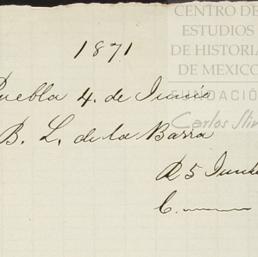 CENTRO DE
ESTUDIOS
DE HISTORIA
DE MEXICO
FUNDACIÓN
Carlos Slim
1871
Puebla 4. de Junio
B. L. de la Barra
R 5 Junio
C.